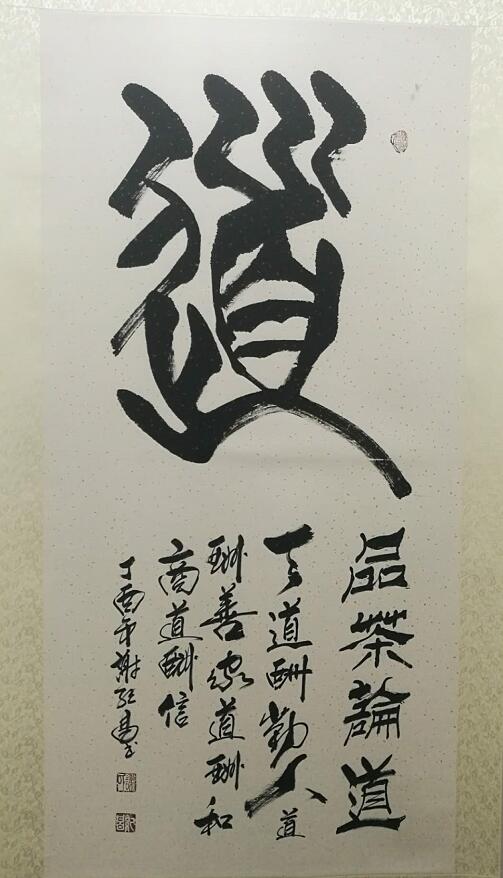 道
品茶論道
天道酬勤人道
酬善家道酬和
商道酬信
丁酉年謝紅昌書